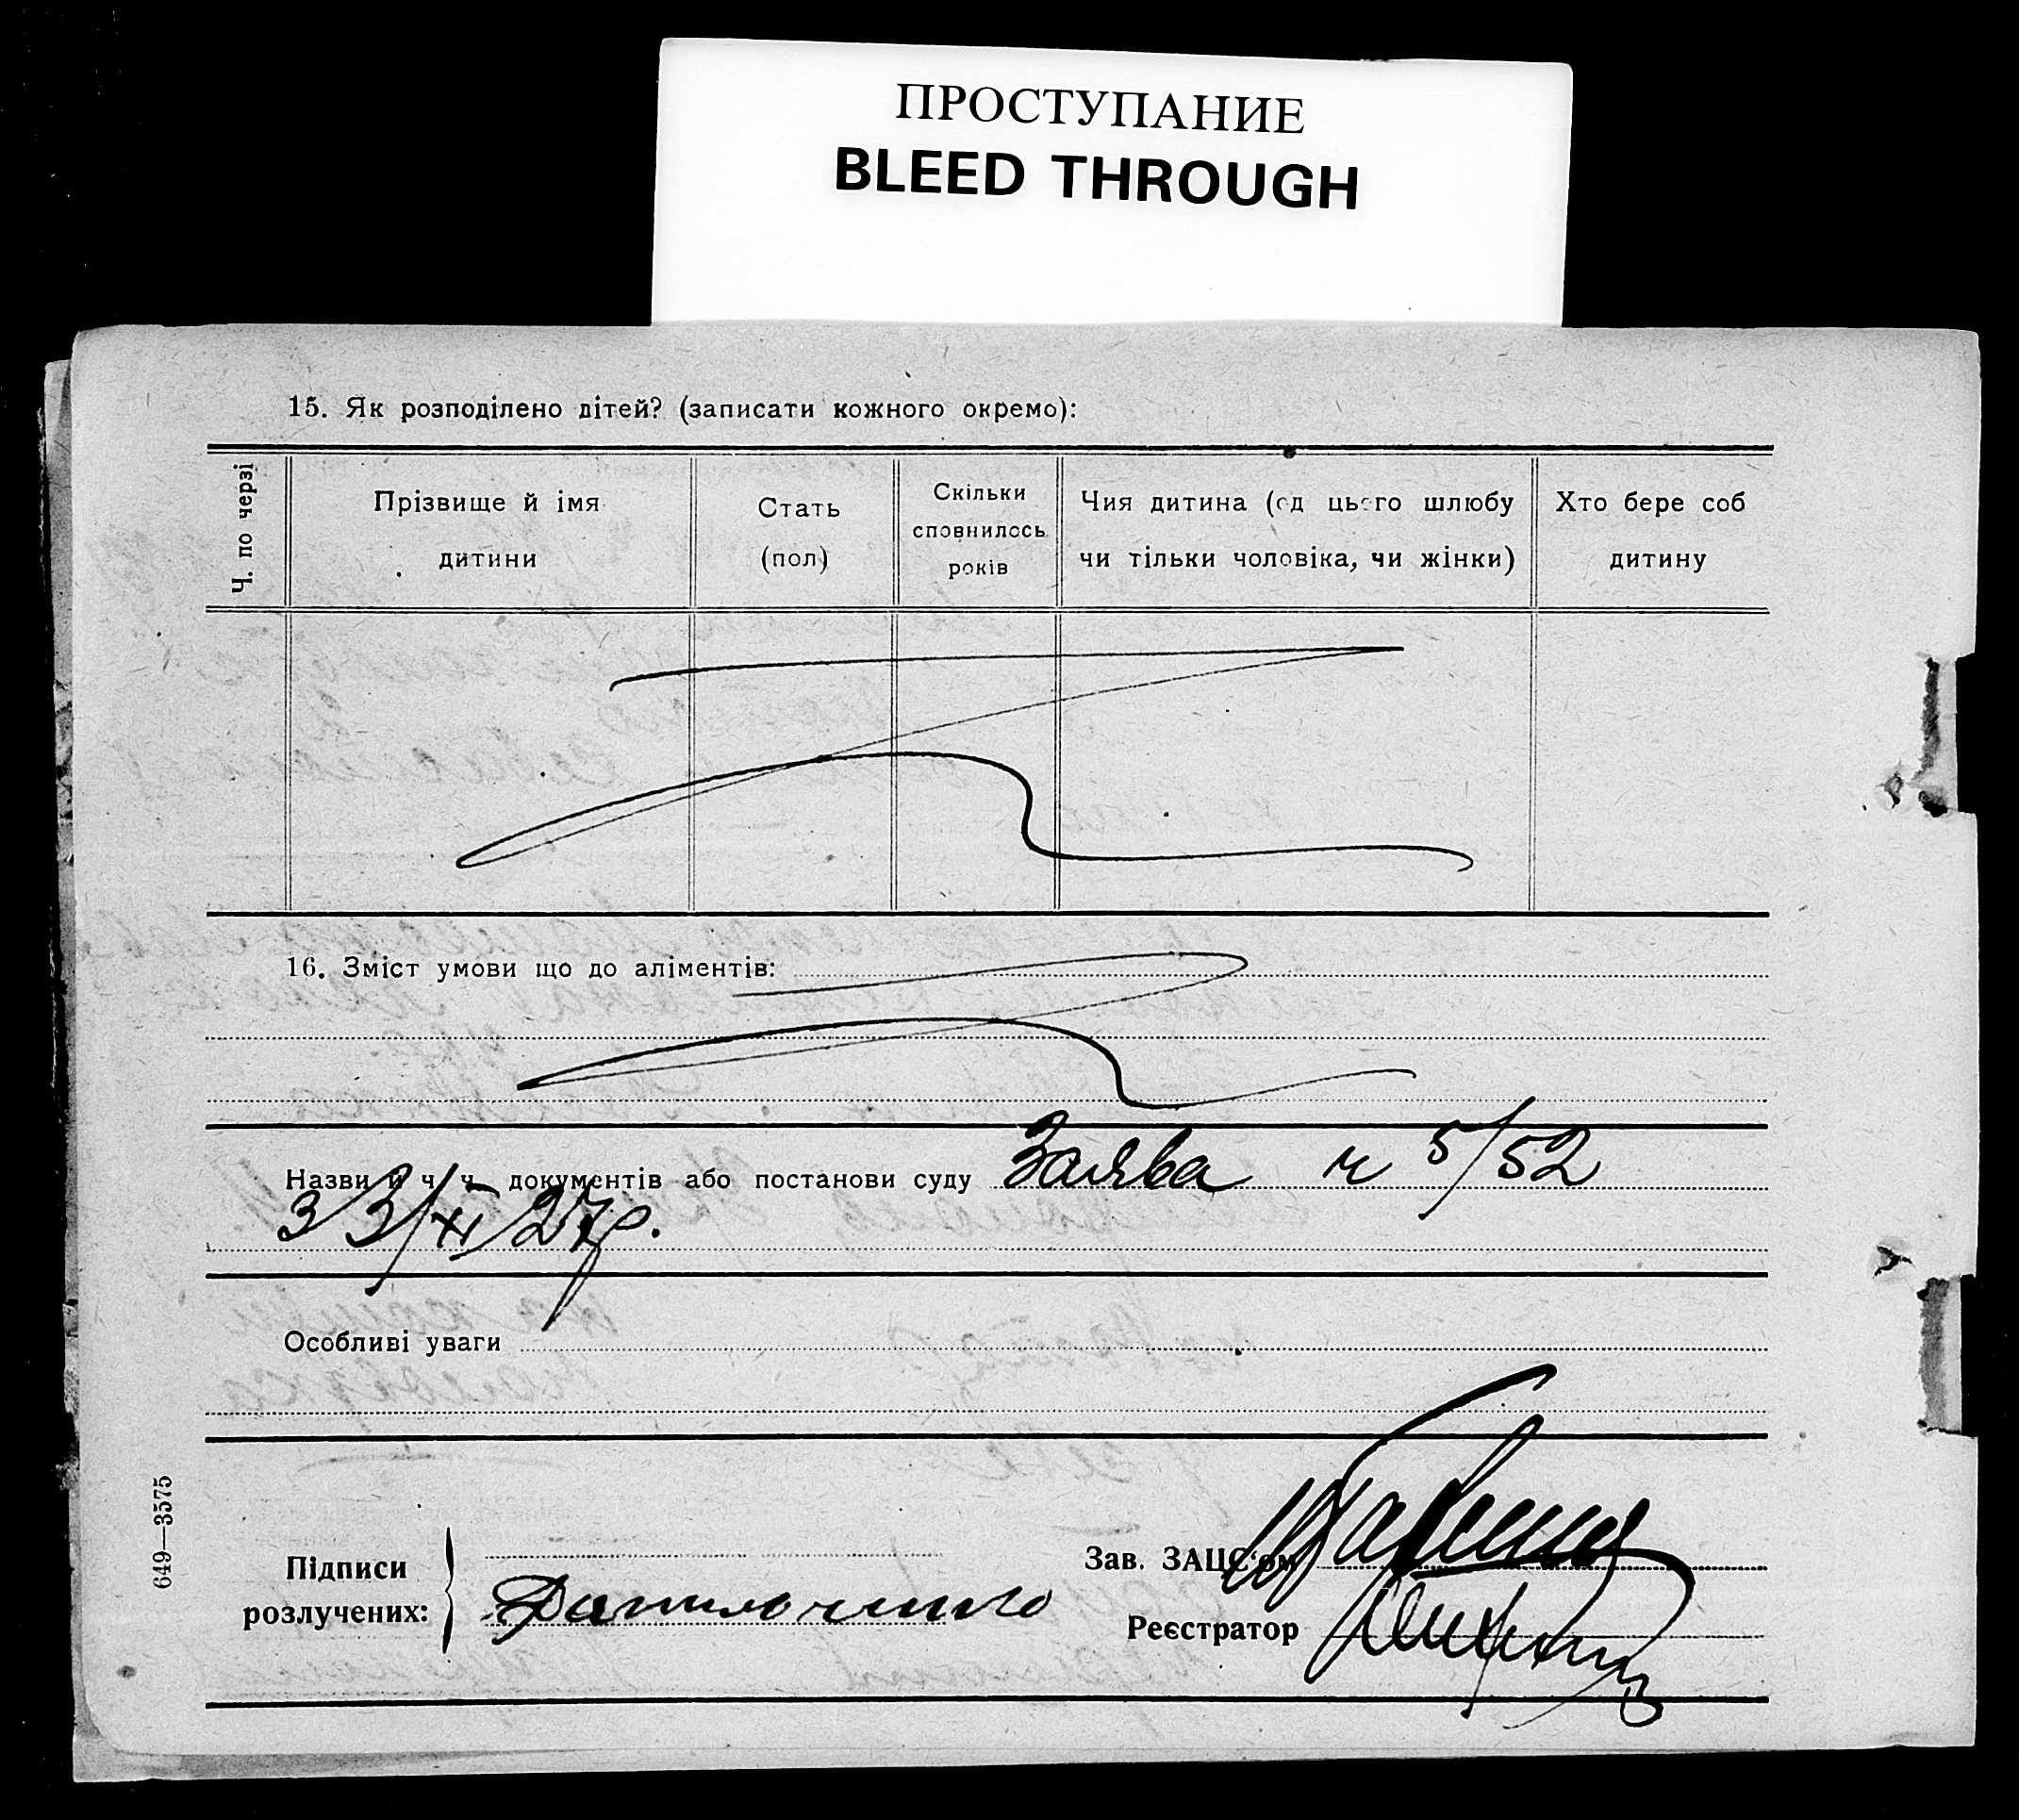 ПРОСТУПАНИЕ
BLEED THROUGH
15. Як розподілено дітей? (записати кожного окремо):
Ч. по черзі
Прізвище й імя дитини
Стать (пол)
Скільки сповнилось років
Чия дитина (од цього шлюбу чи тільки чоловіка, чи жінки)
Хто бере соб дитину
16. Зміст умови що до аліментів:
Назви й ч. ч. документів або постанови суду Заява ч 5/52
з 3/XI 27р.
Особливі уваги
Підписи
розлучених:
Зав. ЗАЦС'ом
Реєстратор
649—3575